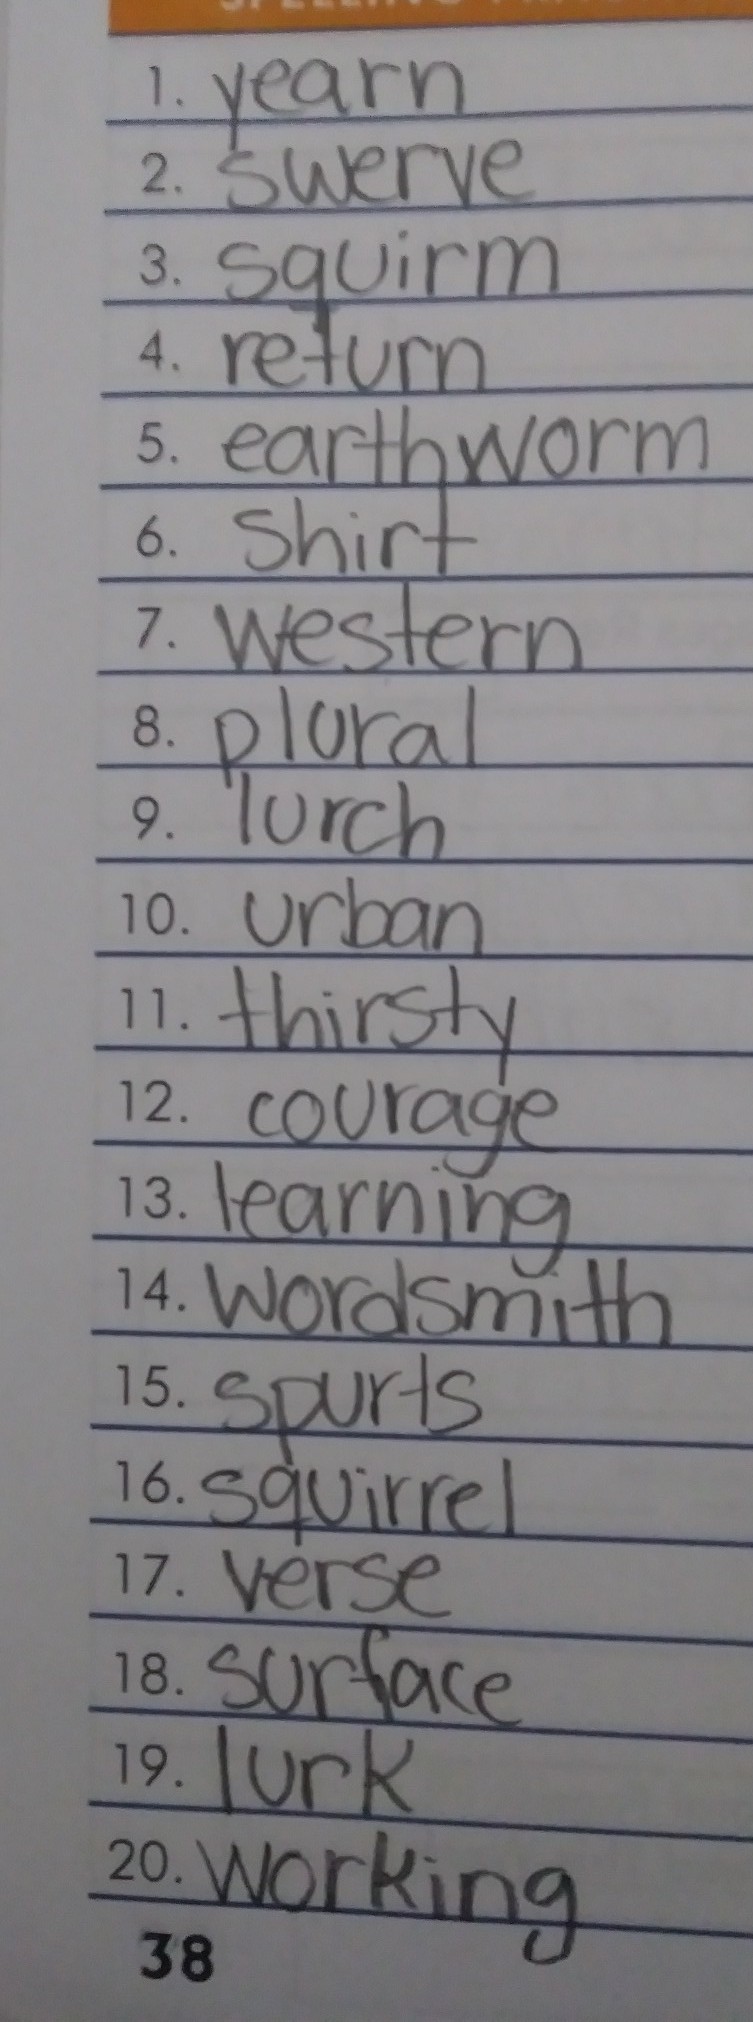 1. yearn
2. swerve
3. squirm
4. return
5. earthworm
6. shirt
7. western
8. plural
9. lurch
10. urban
11. thirsty
12. courage
13. learning
14. wordsmith
15. spurts
16. squirrel
17. verse
18. surface
19. lurk
20. working
38